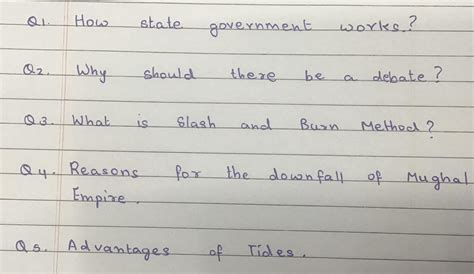 Q1. How state government works.?
Q2. Why should there be a debate?
Q3. What is Slash and Burn Method?
Q4. Reasons for the downfall of Mughal
Empire.
Q5. Advantages of Tides.